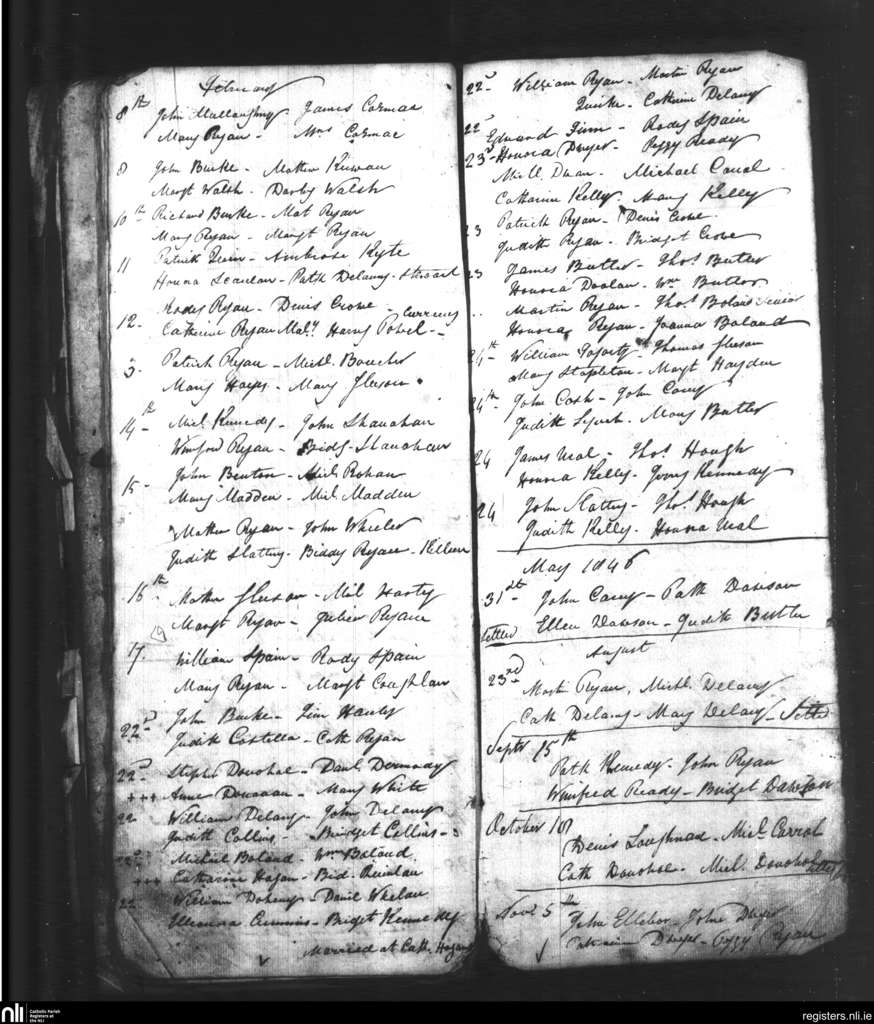 February
8th John Mullaughny James Cormac
Mary Ryan - Mrs Cormac
8 John Burke - Mathew Kirwan
Margt Walsh - Darby Walsh
10th Richard Burke - Mat Ryan
Mary Ryan - Margt Ryan
11 Patrick - Ambrose Kyte
Honna Scanlan - Patk Delany - Stewart
Rody Ryan - Denis Crowe -
12 - Catherine Ryan
3. Patrick Ryan - Michl. Boucher
Mary Hayes - Mary Gleeson
14th - Mil Kennedy - John Shanahan
Winford Ryan - Bidg - Shanahan
15 - John Benton - Mil Rohan
Mary Madden - Mil Madden
Mathew Ryan - John Wheeler
Judith Slattery - Biddy Ryan - Killeen
16th - Mathew Gleeson - Mil Harty
Margt Ryan - Julia Ryan
17. William Spain - Rody Spain
Mary Ryan - Margt Coughlan
22d John Burke - Tim Hanly
Judith Costello - Cath Ryan
22d Stephen Donohoe - Danl Dermody
+++ Anne - Mary White
22 William Delany - John Delany
Judith Collins - Bridget Collins -
Michael Boland - Wm Boland
+++ Catharine Hogan - Bid - Quinlan
22 William Doheny - Daniel Whelan
Eleanora Cummins - Bridget Kennedy
Married at Cath. Hogans
22d William Ryan - Martin Ryan
- Catherine Delany
22d Edward Finn - Rody Spain
23d - Honora Dwyer - Peggy Ready
Mill. Dwan - Michael
Catharine Kelly - Mary Kelly
23 Patrick Ryan - Denis Crowe
Judith Ryan - Bridget Crowe
23 James Butler - Thos. Butler
Honora Doolan - Wm Butler
Martin Ryan - Thos. Boland Senior
Honora Ryan - Joanna Boland
24th William Fogarty Thomas Gleeson
Mary Stapleton - Margt Hayden
24th - John Cash - John Carey
Judith Lynch - Mary Butler
24 James Meal - Thos. Hough
Honora Kelly - Kennedy
24 John Slattery - Thos. Hough
Judith Kelly - Honora Meal
May 1846
31st - John Carey - Patk Dawson
Settled Ellen Dawson - Judith Butler
August
23rd Martin Ryan, Michl. Delany
Cath Delany - Mary Delany - Settled
Septr 15th
Patk Kennedy - John Ryan
Winifred Ready - Bridget Dawson
October 10
Denis Loughnan - Michl Carrol
Cath Donohoe - Michl. Donohoe Settled
Novr 5th
John - John Dwyer
Catharine Dwyer - Peggy Ryan
nli
Catholic Parish
Registers at
the NLI
registers.nli.ie